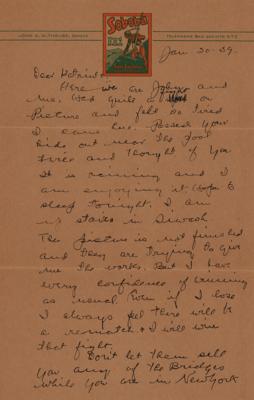 Sobeys
INN
JOHN
TELEPHONE
Jan 20-39.
Dear
Here we are John and
me. Had quite a on
Picture and felt so tired
I came Passed your
out near the
and thought of you
It is raining and I
am enjoying it
sleep tonight. I am
up stairs in
The picture is not finished
and they are trying to give
me the works. But I have
every confidence of winning
as usual. Even if I lose
I always feel there will be
a rematch & I will win
that fight.
Don't let them sell
you any of the Bridges
while you are in New York